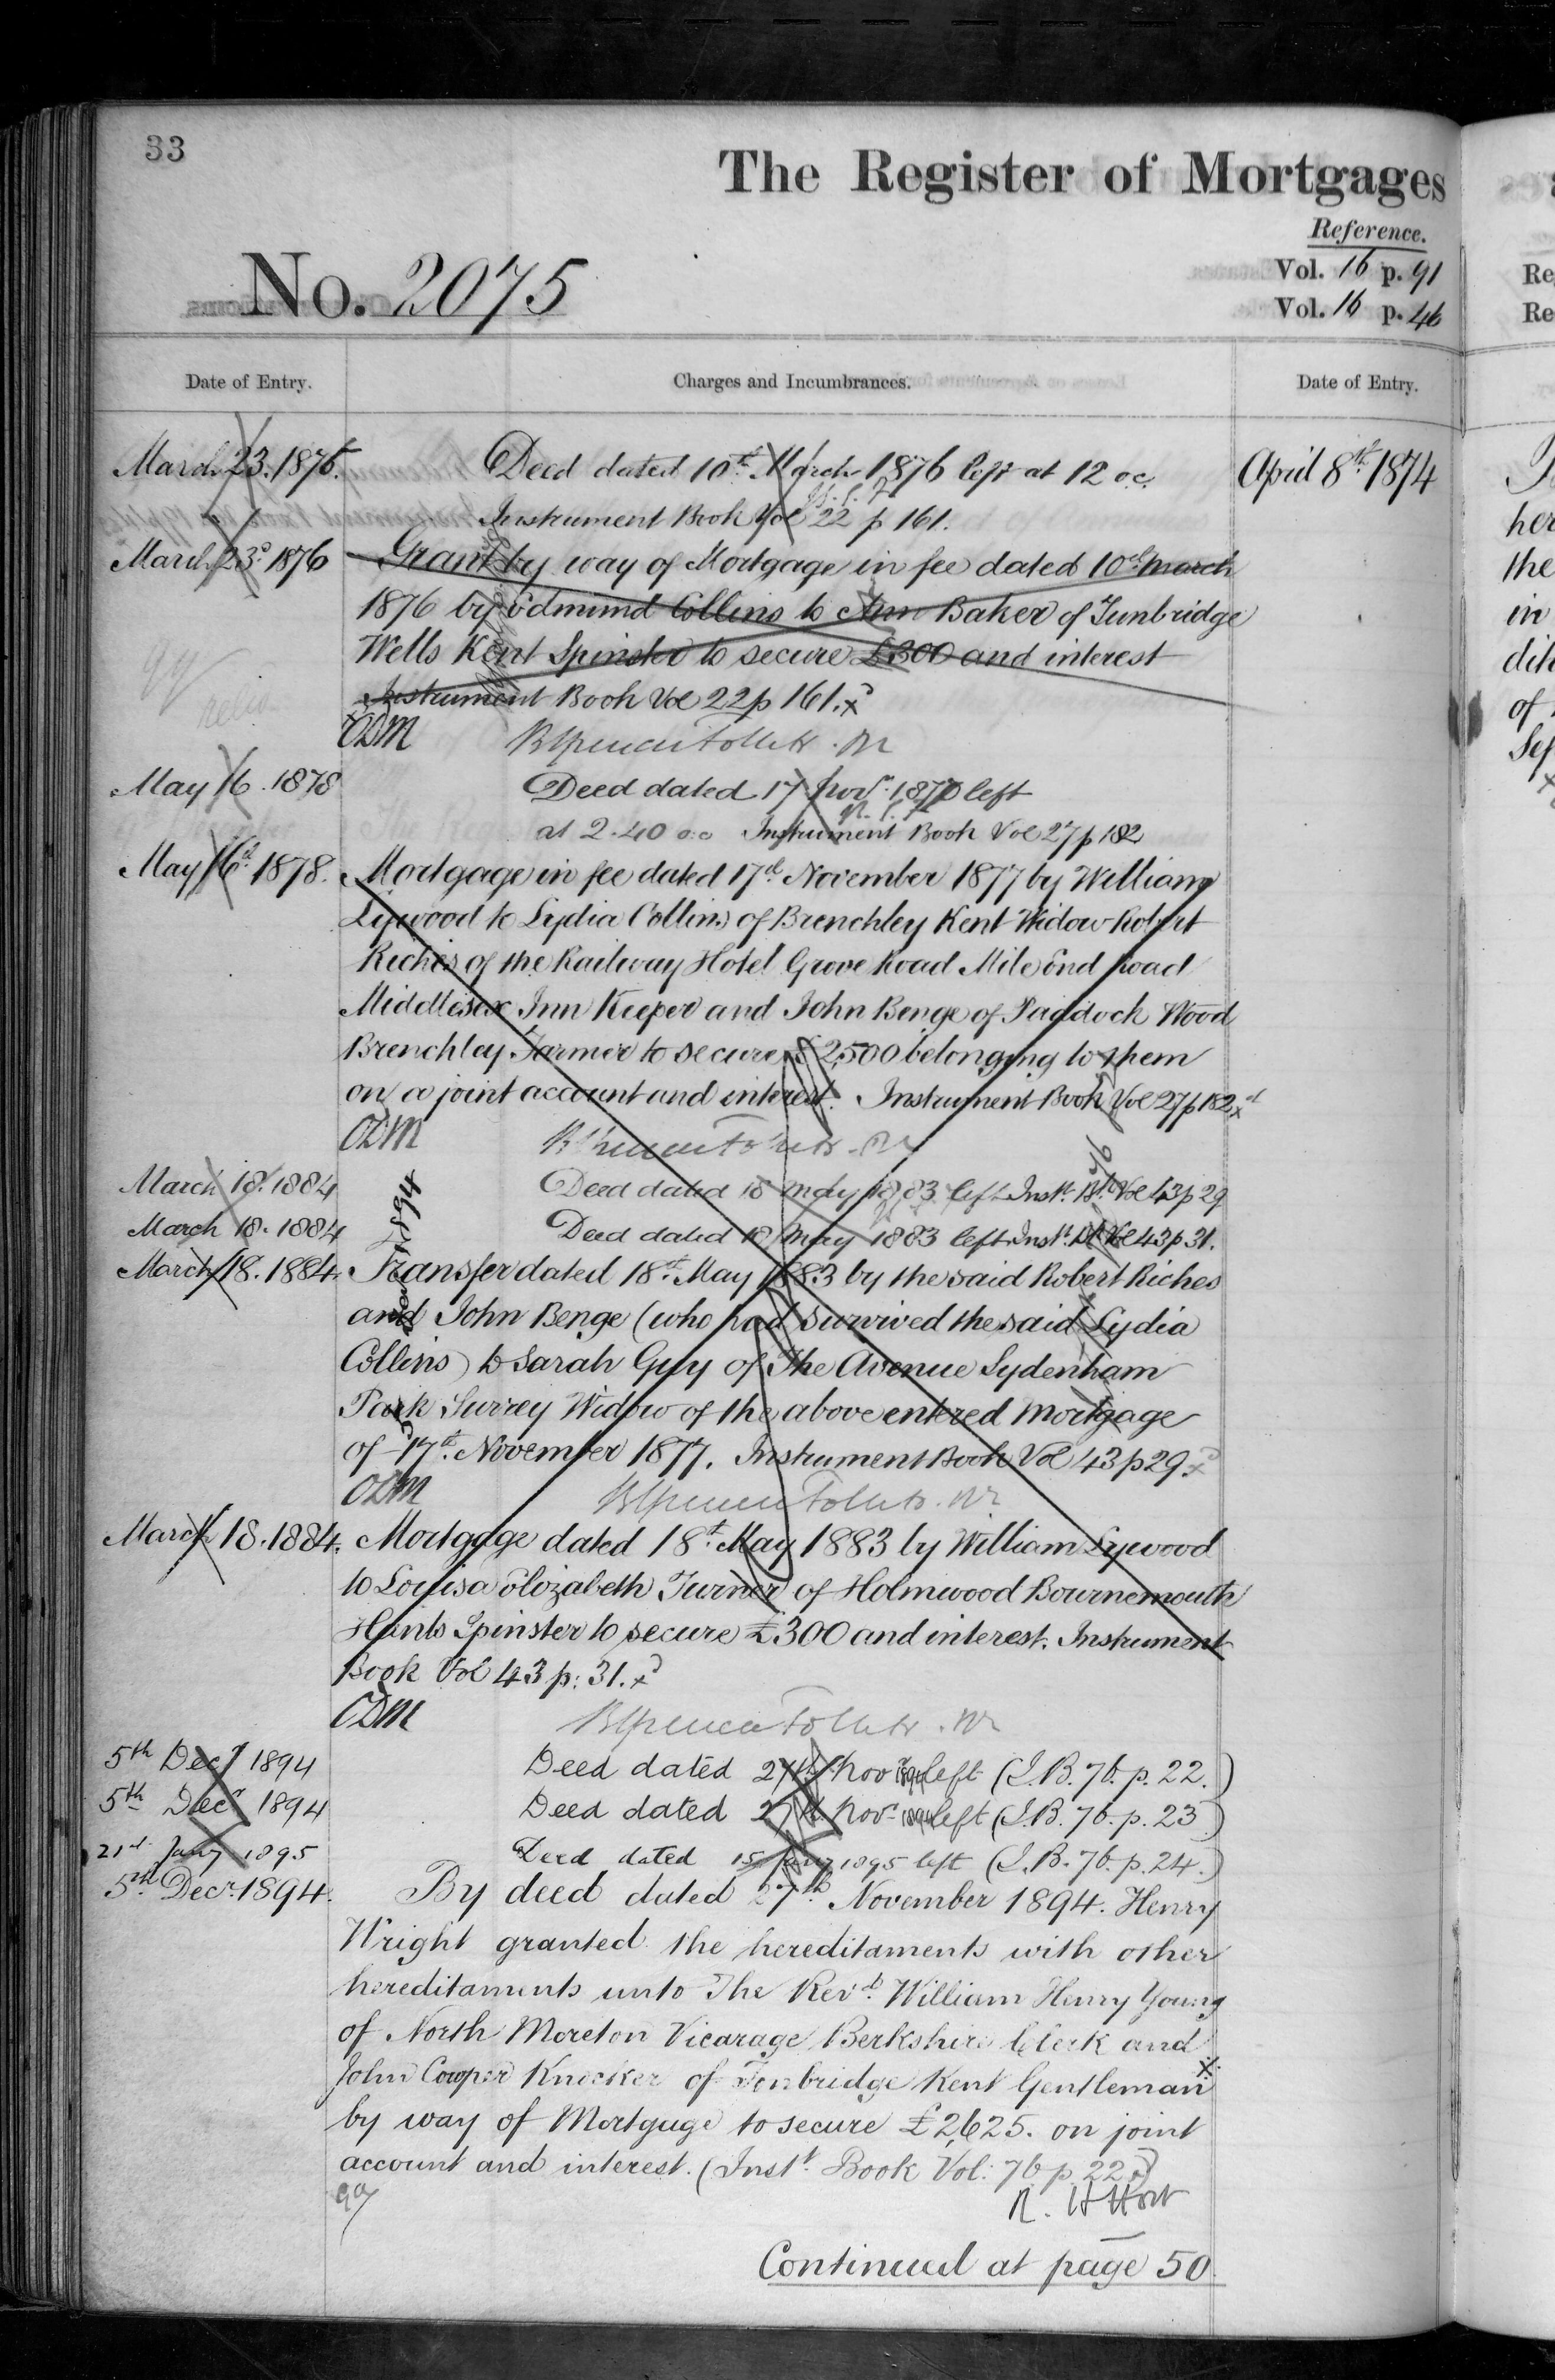 33
The Register of Mortgages
Reference.
No. 2075
Vol. 16 p. 91
Vol. 16 p. 46
Date of Entry.
Charges and Incumbrances.
Date of Entry.
March 23. 1876.
Deed dated 10th March 1876 left at 12 oc.
April 8th 1874
Instrument Book Vol 22 p 161.
March 23d 1876
Grant by way of Mortgage in fee dated 10th March
1876 by Edmund Collins to Ann Baker of Tunbridge
Wells Kent Spinster to secure £300 and interest
Instrument Book Vol 22 p 161.
ODM
May 16. 1878
Deed dated 17 Novr. 1877 left
at 2.40 oc Instrument Book Vol 27 p 182
May 16th 1878.
Mortgage in fee dated 17th November 1877 by William
Lywood to Lydia Collins of Brenchley Kent Widow Robert
Riches of the Railway Hotel Grove Road Mile End Road
Middlesex Inn Keeper and John Benge of Paddock Wood
Brenchley Farmer to secure £2500 belonging to them
on a joint account and interest. Instrument Book Vol 27 p 182
ODM
March 18. 1884
Deed dated 18 May 1883 left Inst. Bk. Vol 43 p 29
March 18. 1884
Deed dated 18 May 1883 left Inst. Bk Vol 43 p 31.
March 18. 1884.
Transfer dated 18th May 1883 by the said Robert Riches
and John Benge (who had survived the said Lydia
Collins) to Sarah Guy of The Avenue Sydenham
Park Surrey Widow of the above entered Mortgage
of 17th November 1877. Instrument Book Vol 43 p 29.
ODM
March 18. 1884.
Mortgage dated 18th May 1883 by William Lywood
to Louisa Elizabeth Turner of Holmwood Bournemouth
Hants Spinster to secure £300 and interest. Instrument
Book Vol 43 p. 31.
ODM
5th Decr 1894
Deed dated 27th Novr 1894 left (I.B. 76. p. 22.)
5th Decr 1894
Deed dated 27th Novr 1894 left (I.B. 76. p. 23)
21st Jany 1895
Deed dated 15 Jany 1895 left (I.B. 76. p. 24.)
5th Decr. 1894.
By deed dated 27th November 1894. Henry
Wright granted the hereditaments with other
hereditaments unto The Revd. William Henry Young
of North Moreton Vicarage Berkshire Clerk and
John Cowper Knocker of Tonbridge Kent Gentleman
by way of Mortgage to secure £2,625. on joint
account and interest. (Inst. Book Vol: 76 p 22)
Continued at page 50.